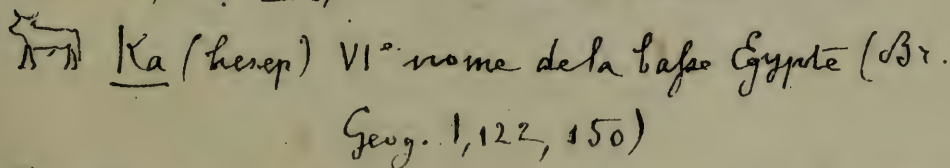 Ka (hesep) VIᵉ nome de la basse Égypte (Br.
Geog. I, 122, 150)